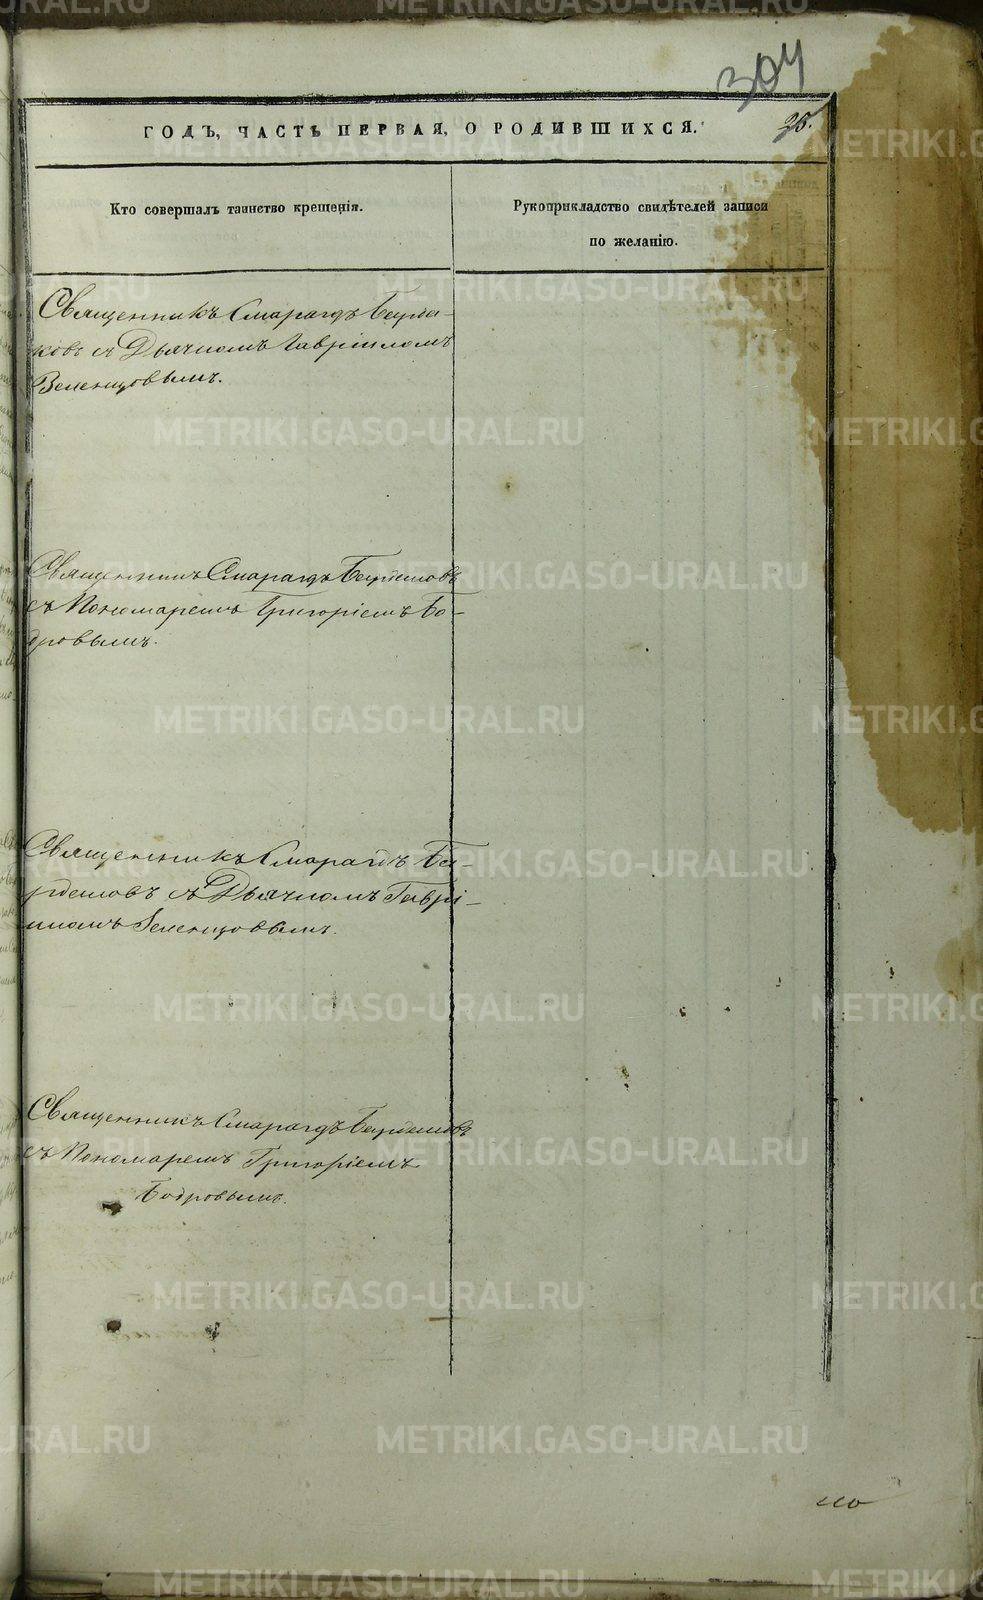 304
ГОДЪ, ЧАСТЬ ПЕРВАЯ, О РОДИВШИХСЯ.
Кто совершалъ таинство крещенія.
Рукоприкладство свидѣтелей записи
по желанію.
Священникъ Смарагдъ
Дьячкомъ Гавріиломъ
Зеленцовымъ.
Священникъ Смарагдъ
съ Пономаремъ Григоріемъ Бо-
дровымъ.
Священникъ Смарагдъ
Дьячкомъ Гаврі-
иломъ Зеленцовымъ.
Священникъ Смарагдъ
съ Пономаремъ Григоріемъ
Бодровымъ.
METRIKI.GASO-URAL.RU